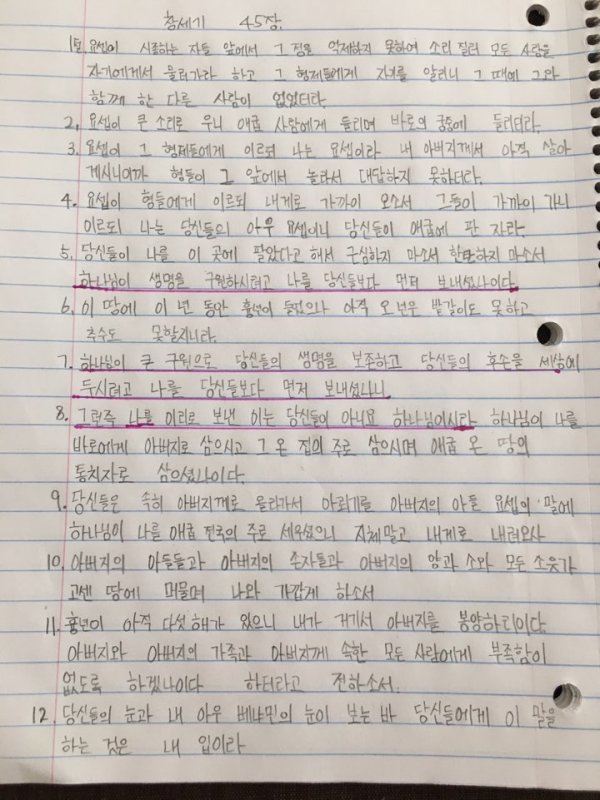 창세기 45장.
1. 요셉이 시종하는 자들 앞에서 그 정을 억제하지 못하여 소리 질러 모든 사람을
자기에게서 물러가라 하고 그 형제들에게 자기를 알리니 그 때에 그와
함께 한 다른 사람이 없었더라.
2. 요셉이 큰 소리로 우니 애굽 사람에게 들리며 바로의 궁중에 들리더라.
3. 요셉이 그 형제들에게 이르되 나는 요셉이라 내 아버지께서 아직 살아
계시니이까 형들이 그 앞에서 놀라서 대답하지 못하더라.
4. 요셉이 형들에게 이르되 내게로 가까이 오소서 그들이 가까이 가니
이르되 나는 당신들의 아우 요셉이니 당신들이 애굽에 판 자라.
5. 당신들이 나를 이 곳에 팔았다고 해서 근심하지 마소서 한탄하지 마소서
하나님이 생명을 구원하시려고 나를 당신들보다 먼저 보내셨나이다.
6. 이 땅에 이 년 동안 흉년이 들었으나 아직 오년은 밭갈이도 못하고
추수도 못할지니라.
7. 하나님이 큰 구원으로 당신들의 생명을 보존하고 당신들의 후손을 세상에
두시려고 나를 당신들보다 먼저 보내셨나니
8. 그런즉 나를 이리로 보낸 이는 당신들이 아니요 하나님이시라 하나님이 나를
바로에게 아버지로 삼으시고 그 온 집의 주로 삼으시며 애굽 온 땅의
통치자로 삼으셨나이다.
9. 당신들은 속히 아버지께로 올라가서 아뢰기를 아버지의 아들 요셉의 말에
하나님이 나를 애굽 전국의 주로 세우셨으니 지체말고 내게로 내려오사
10. 아버지의 아들들과 아버지의 손자들과 아버지의 양과 소와 모든 소유가
고센 땅에 머물며 나와 가깝게 하소서
11. 흉년이 아직 다섯 해가 있으니 내가 거기서 아버지를 봉양하리이다.
아버지와 아버지의 가족과 아버지께 속한 모든 사람에게 부족함이
없도록 하겠나이다 하더라고 전하소서.
12. 당신들의 눈과 내 아우 베냐민의 눈이 보는 바 당신들에게 이 말을
하는 것은 내 입이라